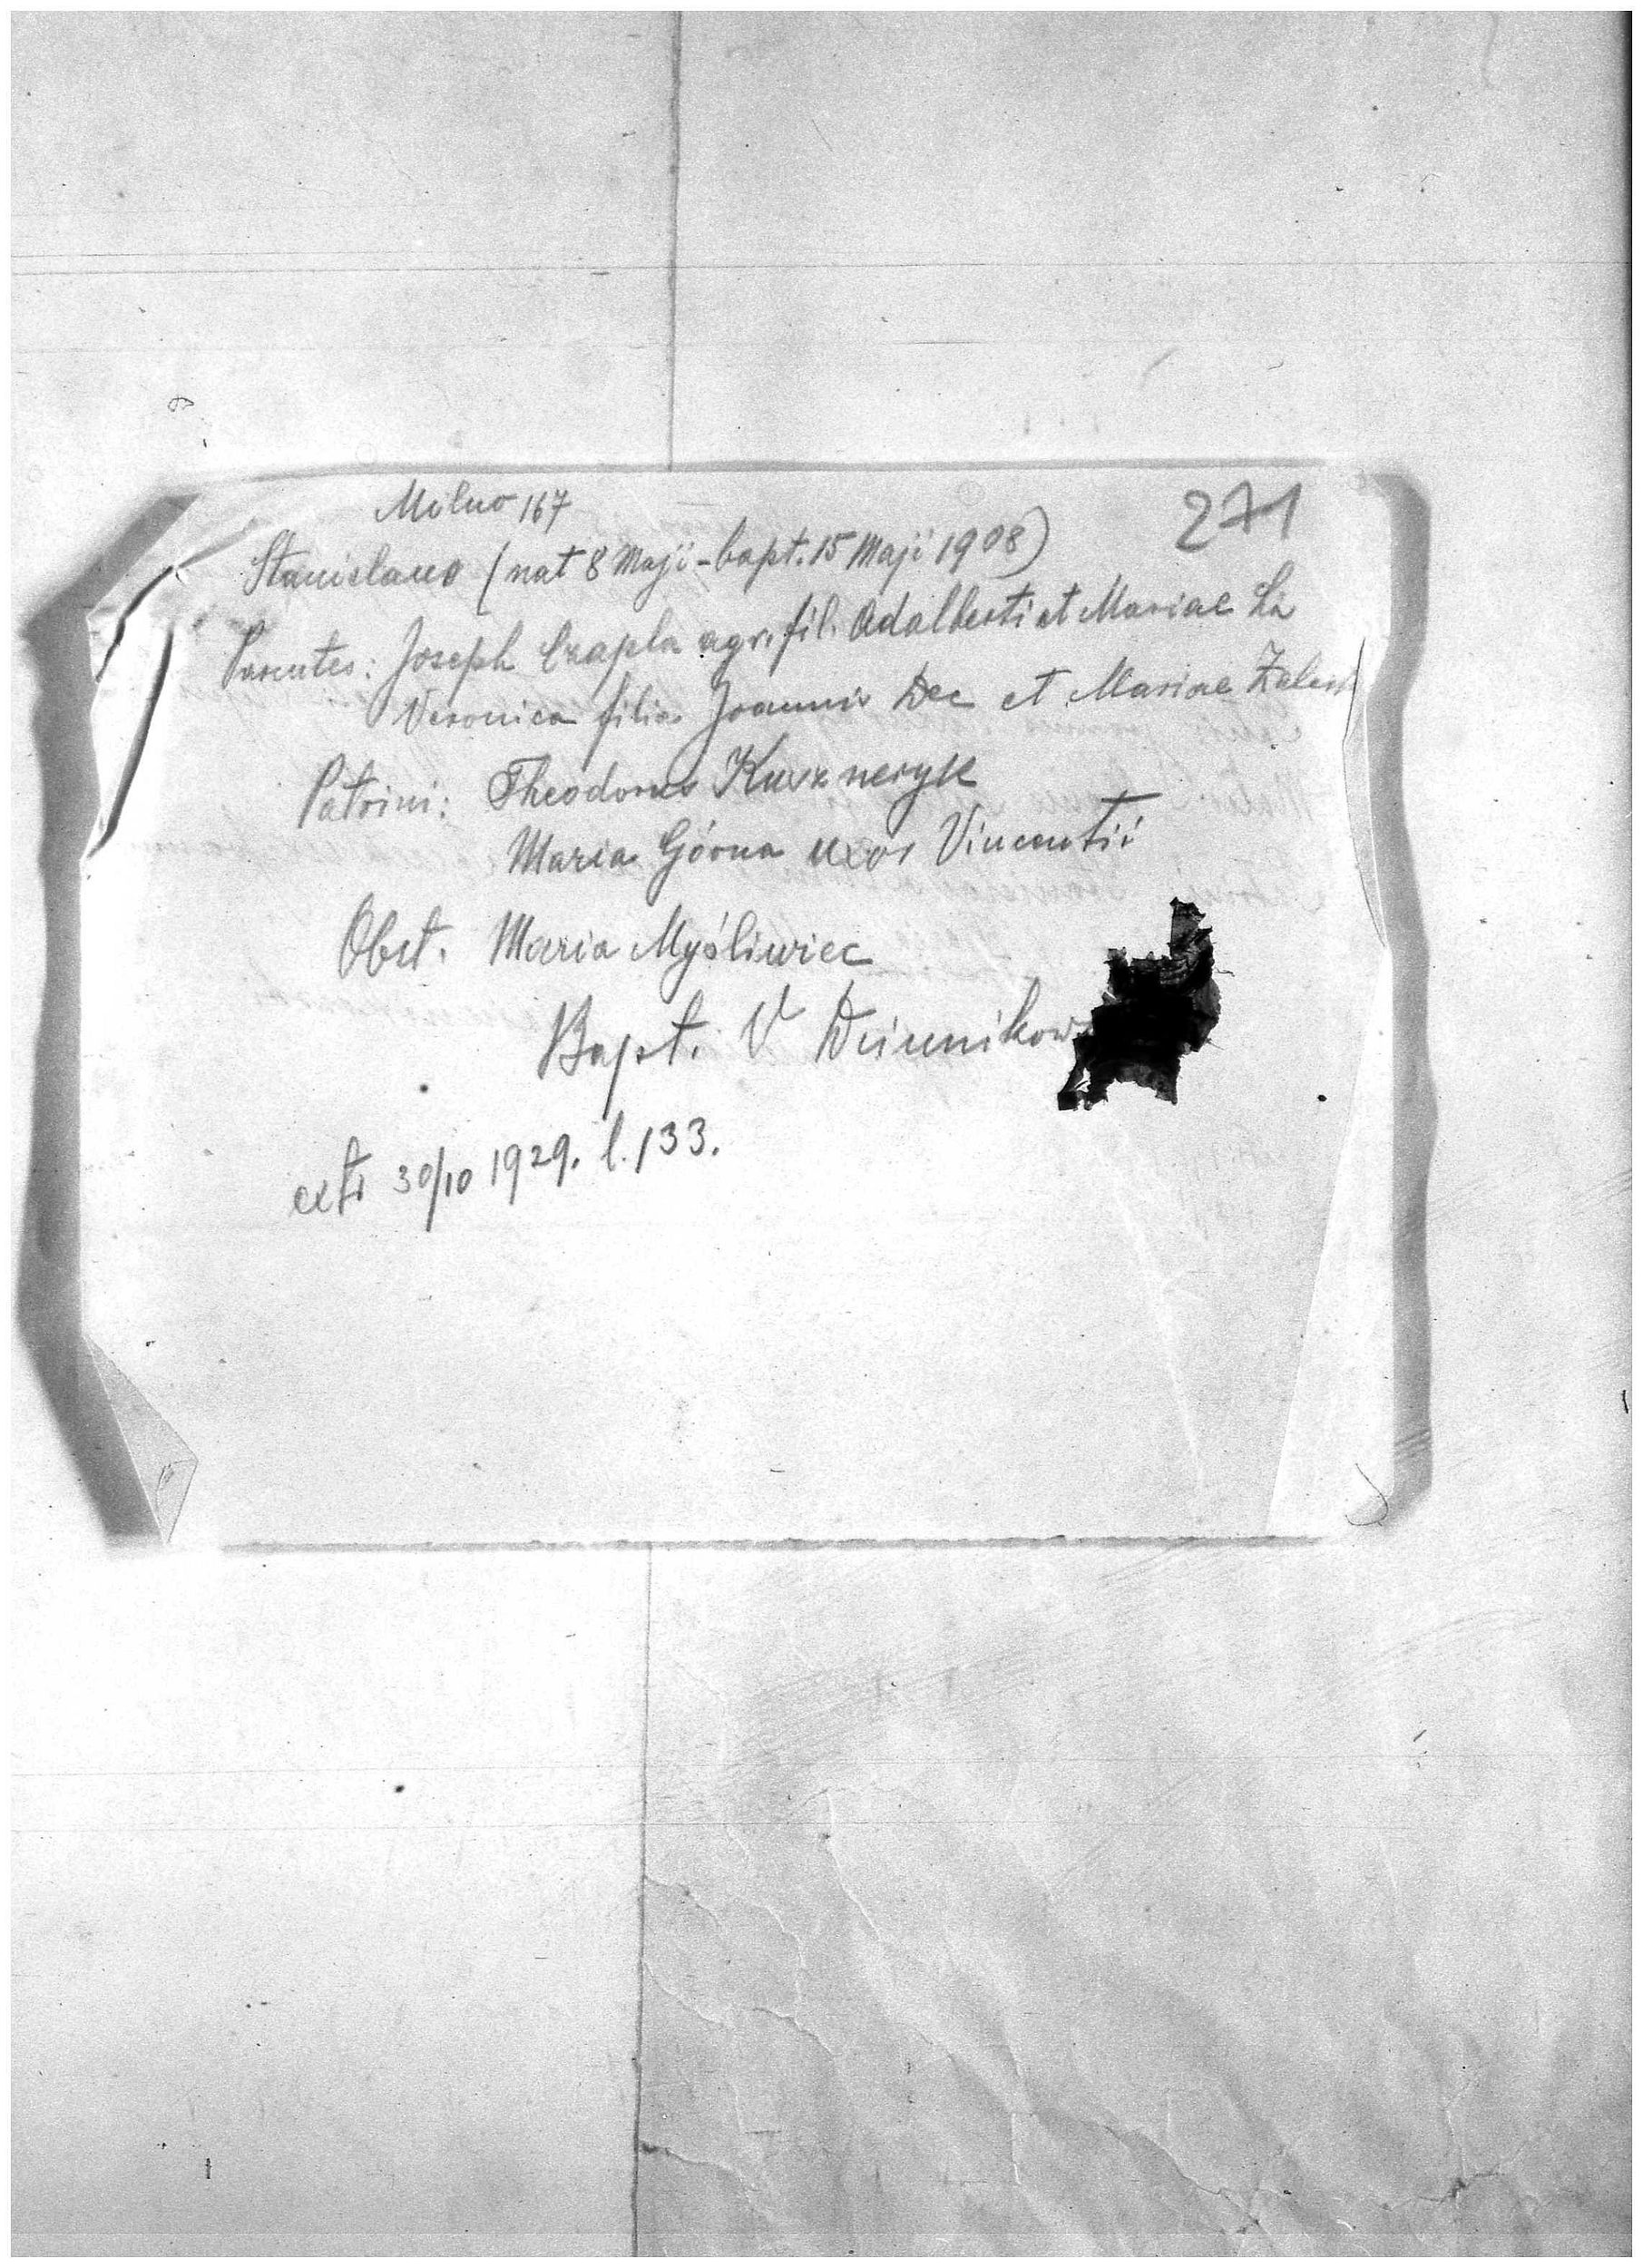 Milno 167
271
Stanislaus (nat 8 Maji - bapt. 15 Maji 1908)
Parentes: Joseph Czapla agr. fil. Adalberti et Mariae
Veronica filia Joannis Dec et Mariae Zalesk
Patrini: Theodorus Kuszneryk
Maria Górna uxor Vincentii
Obst. Maria Myśliwiec
Bapt. V
extr 30/10 1929. l. 133.